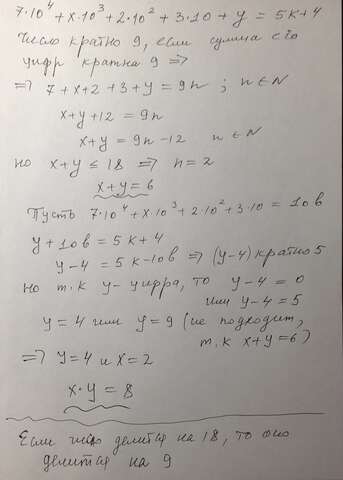 7·10⁴ + x·10³ + 2·10² + 3·10 + y = 5k+4
Число кратно 9, если сумма его
цифр кратна 9 ⇒
⇒ 7 + x + 2 + 3 + y = 9n ; n ∈ N
x+y+12 = 9n
x+y = 9n-12 n ∈ N
но x+y ≤ 18 ⇒ n=2
x+y=6
Пусть 7·10⁴ + x·10³ + 2·10² + 3·10 = 10b
y+10b = 5k+4
y-4 = 5k-10b ⇒ (y-4) кратно 5
но т.к y - цифра, то y-4 = 0
или y-4 = 5
y = 4 или y = 9 (не подходит,
т.к x+y=6)
⇒ y=4 и x=2
x·y = 8
Если число делится на 18, то оно
делится на 9